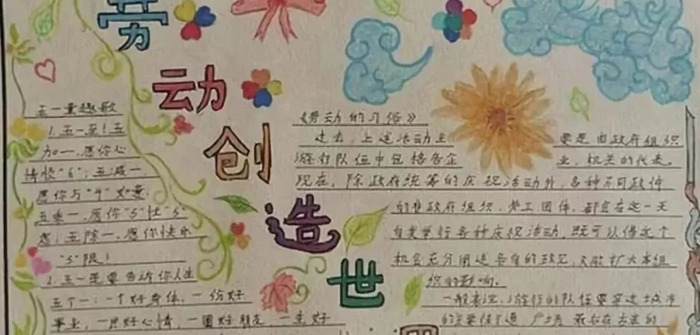 劳
动
创
造
世
五一童趣歌
1.五一至!五
加一,愿你心
情快"6";五减一
愿你与"4"如意;
五乘一,愿你"5"忧"5"
虑;五除一,愿你快乐
"5"限!
2.五一是要告诉你人生
五个一:一个好身体,一份好
事业,一片好心情,一圈好朋友,一生好
《劳动的习俗》
过去,上述活动主要是由政府组织
游行队伍中包括各企业,机关的代表。
现在,除政府统筹的庆祝活动外,各种不同政体
的准政府组织,劳工团体,都会在这一天
自主举行各种庆祝活动,既可以借这个
机会充分阐述各自的政见,又能扩大本组
织的影响。
一般来说,游行的队伍要穿过城市
的主要